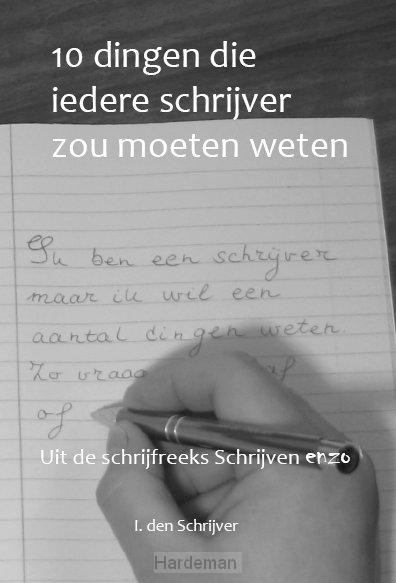 10 dingen die
iedere schrijver
zou moeten weten
Ik ben een schrijver
maar ik wil een
aantal dingen weten.
Zo vraag af
of
Uit de schrijfreeks Schrijven enzo
I. den Schrijver
Hardeman